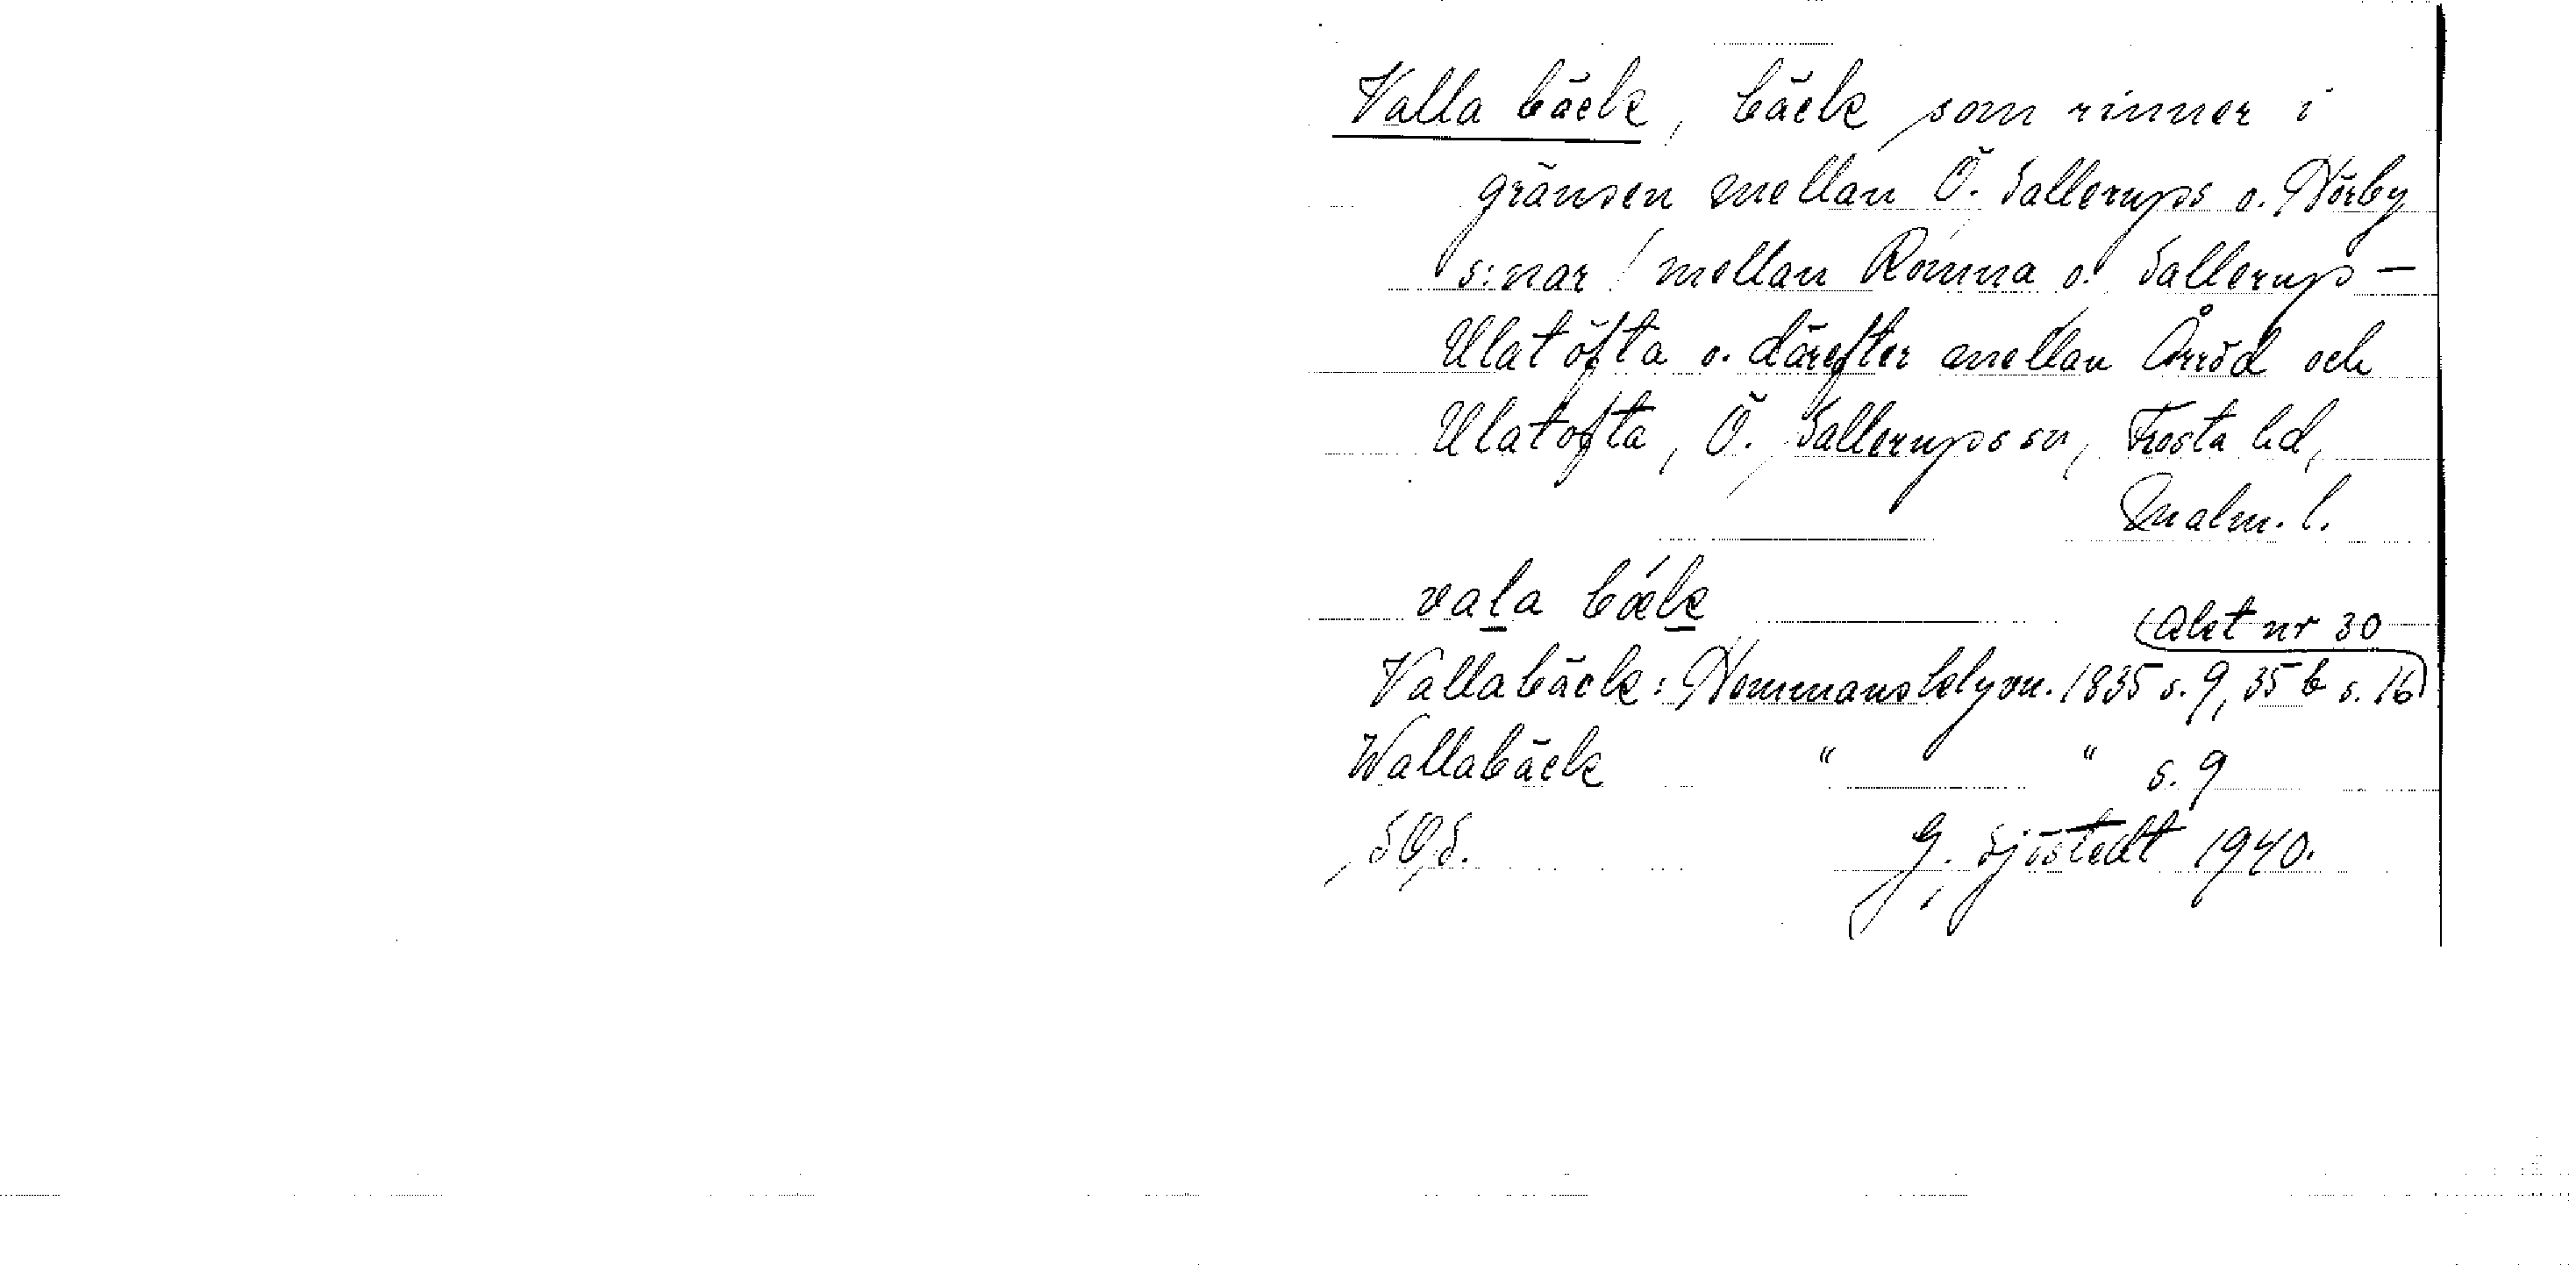 Valla bäck, bäck som rinner i
gränsen mellan Ö. Sallerups o. Hörby
s:nar / mellan Römma o. Sallerup -
Ulatofta o. därefter mellan Årröd och
Ulatofta, Ö. Sallerups sn, Frosta hd,
Malm. l.
vala bæk
(Akt nr 30
Vallabäck: Hemmansklyvn. 1835 s. 9, 35 b s. 16)
Wallabäck " " s. 9
SOS. G. Sjöstedt 1940.